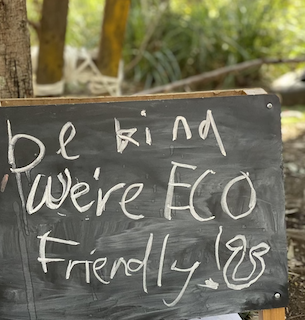 be kind
we're ECO
Friendly!